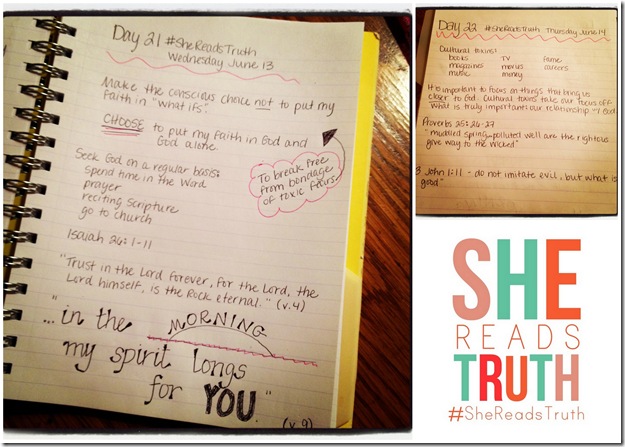 Day 21 #SheReadsTruth
Wednesday June 13
Make the conscious choice not to put my
faith in "what ifs".
CHOOSE to put my faith in God and
God alone.
To break free
from bondage
of toxic fears.
Seek God on a regular basis:
spend time in the Word
prayer
reciting scripture
go to church
Isaiah 26:1-11
"Trust in the Lord forever, for the Lord, the
Lord himself, is the Rock eternal." (v.4)
"...in the MORNING
my spirit longs
for YOU."
(v.9)
Day 22 #SheReadsTruth Thursday June 14
Cultural toxins:
books TV fame
magazines movies careers
music money
It's important to focus on things that bring us
closer to God. Cultural toxins take our focus off
what is truly important: our relationship w/ God
Proverbs 25:26-27
"muddied spring, polluted well are the righteous
give way to the wicked"
3 John 1:11 - do not imitate evil, but what is
good"
SHE
READS
TRUTH
#SheReadsTruth